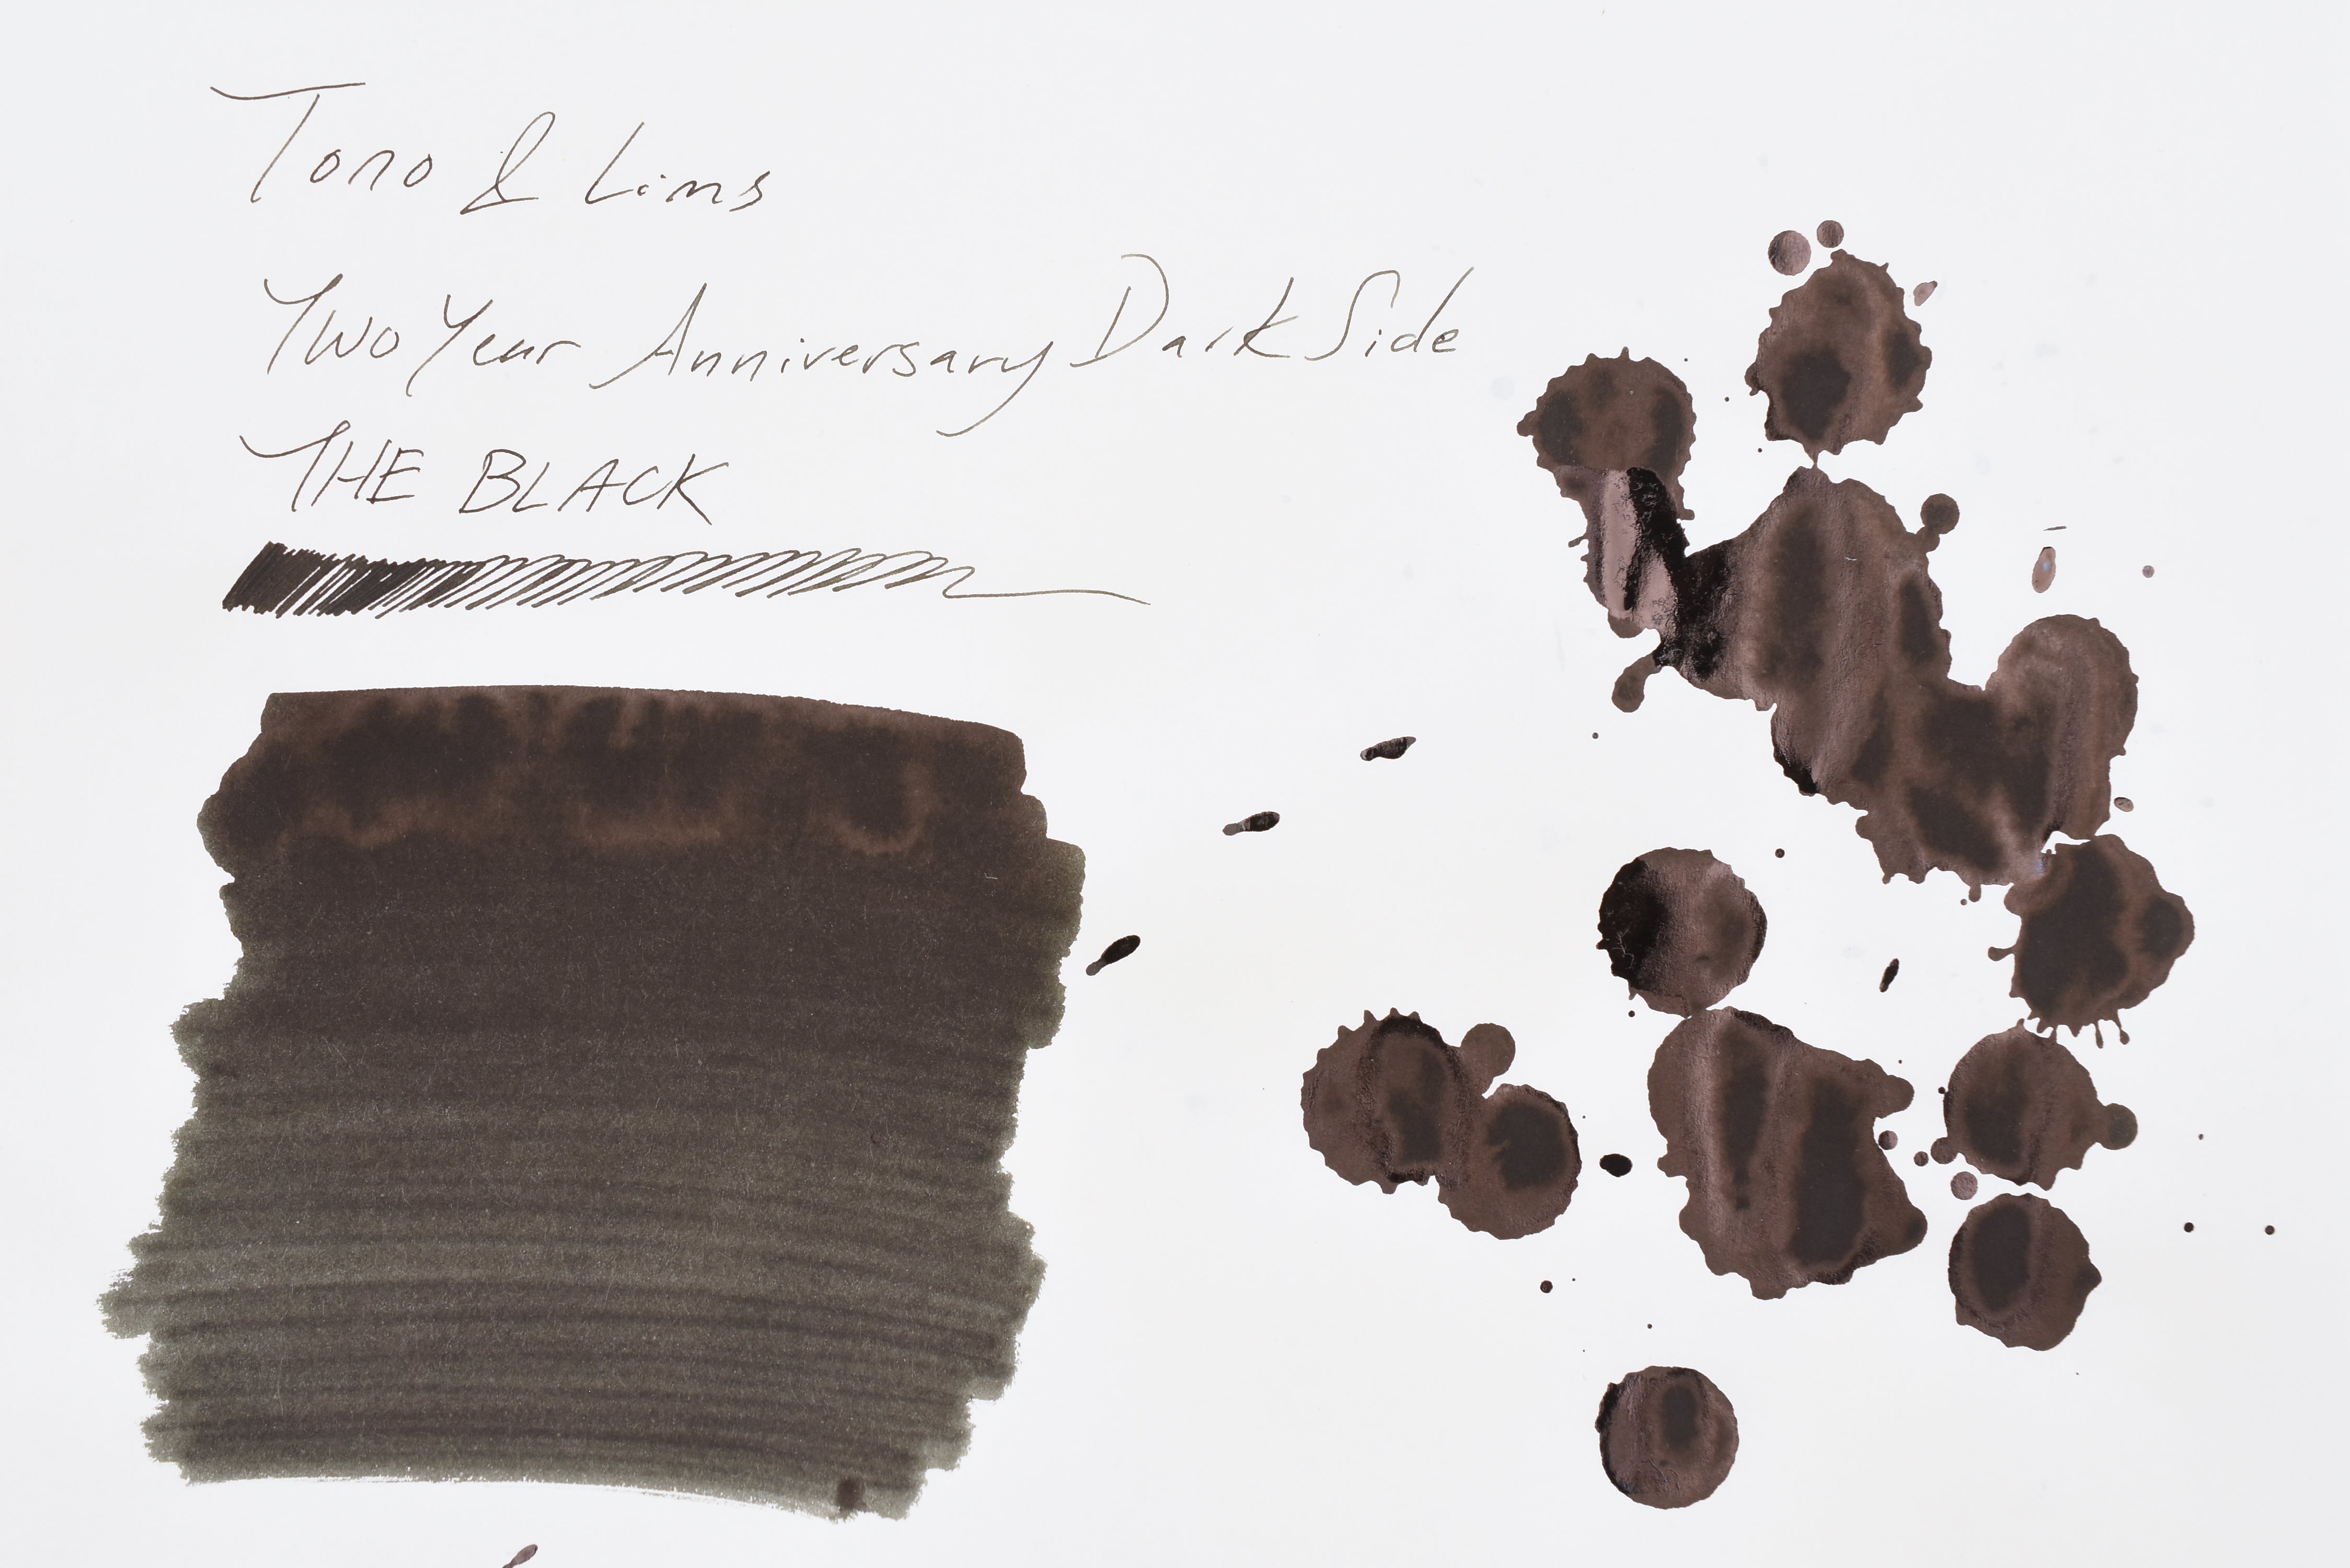 Tono & Lims
Two Year Anniversary Dark Side
THE BLACK